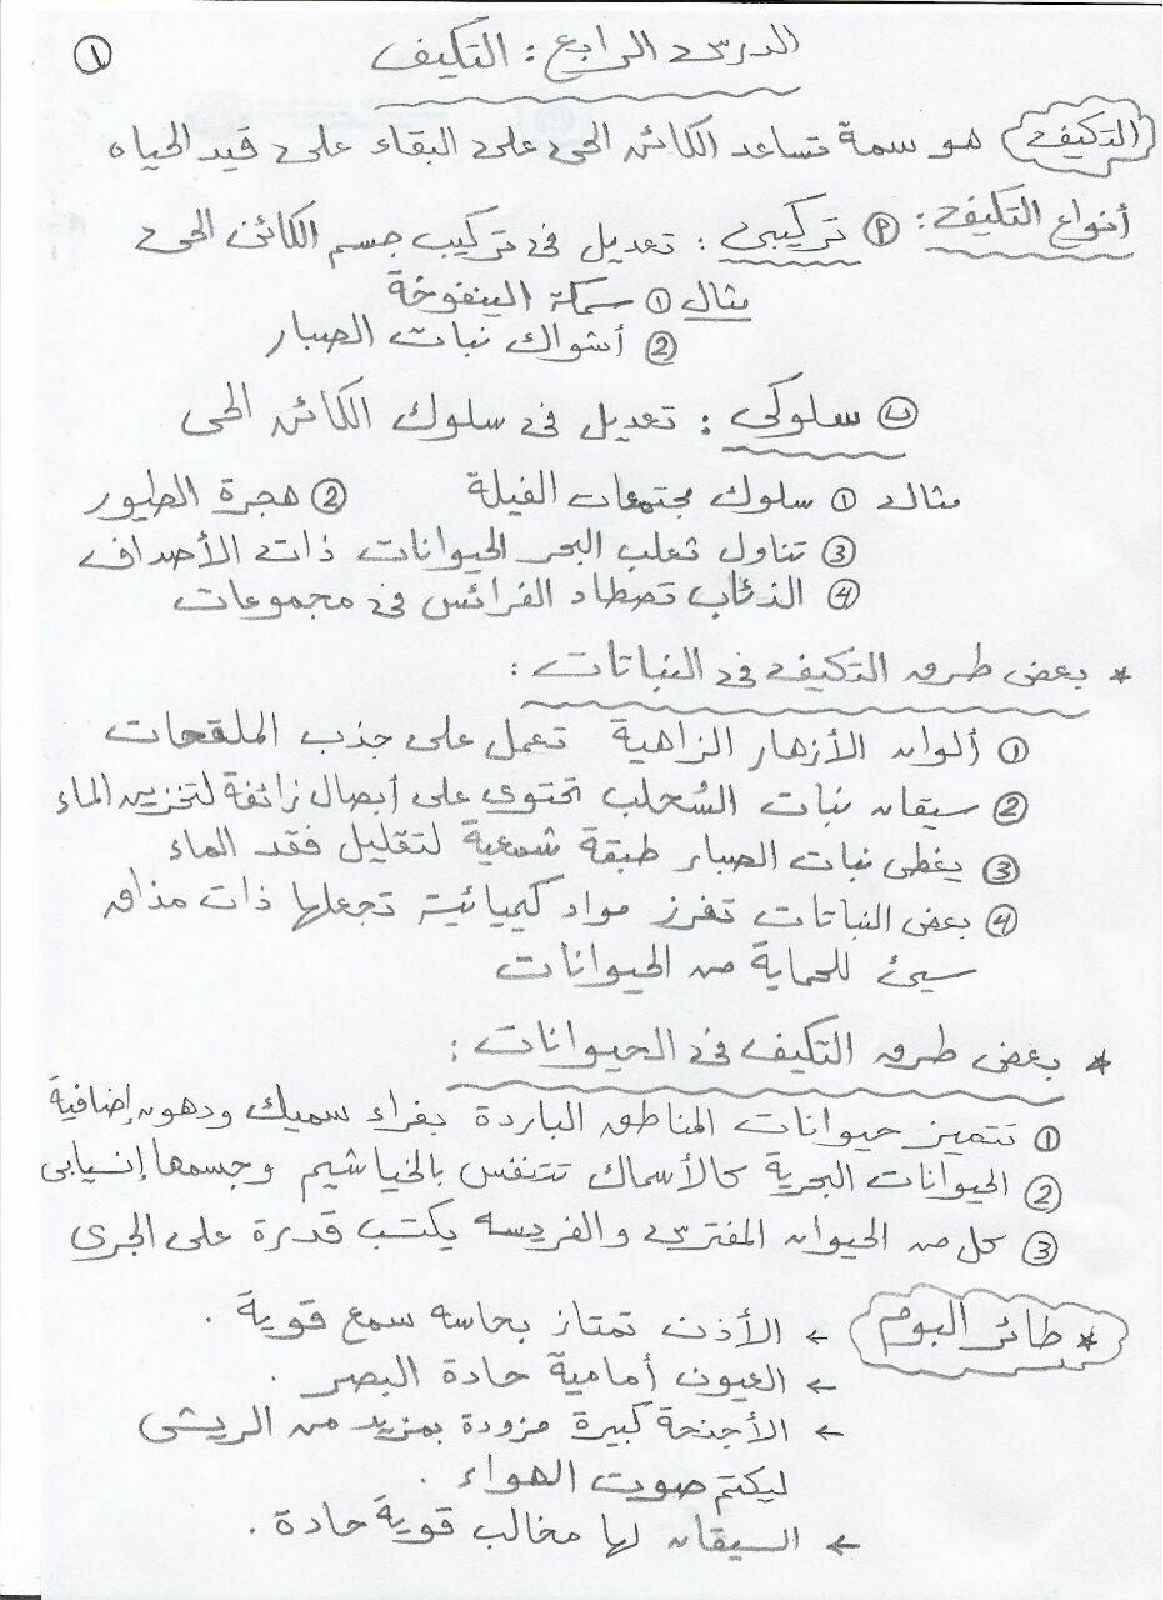 ١
الدرس الرابع : التكيف
التكيف هو سمة تساعد الكائن الحى على البقاء على قيد الحياه
أنواع التكيف : أ تركيبى : تعديل فى تركيب جسم الكائن الحى
مثال ① سمكة الينفوخة
② أشواك نبات الصبار
ب سلوكى : تعديل فى سلوك الكائن الحى
مثال ① سلوك مجتمعات الفيلة ② هجرة الطيور
③ تناول ثعلب البحر الحيوانات ذات الأصداف
④ الذئاب تصطاد الفرائس فى مجموعات
* بعض طرق التكيف فى النباتات :
① ألوان الأزهار الزاهية تعمل على جذب الملقحات
② سيقان نبات السُحلب تحتوى على أبصال زائفة لتخزين الماء
③ يغطى نبات الصبار طبقة شمعية لتقليل فقد الماء
④ بعض النباتات تفرز مواد كيميائية تجعلها ذات مذاق
سيئ للحماية من الحيوانات
* بعض طرق التكيف فى الحيوانات :
① تتميز حيوانات المناطق الباردة بفراء سميك ودهون إضافية
② الحيوانات البحرية كالأسماك تتنفس بالخياشيم وجسمها إنسيابى
③ كل من الحيوان المفترس والفريسه يكتسب قدرة على الجرى
* طائر البوم ← الأذن تمتاز بحاسه سمع قوية .
← العيون أمامية حادة البصر .
← الأجنحة كبيرة مزودة بمزيد من الريش
ليكتم صوت الهواء .
← السيقان لها مخالب قوية حادة .